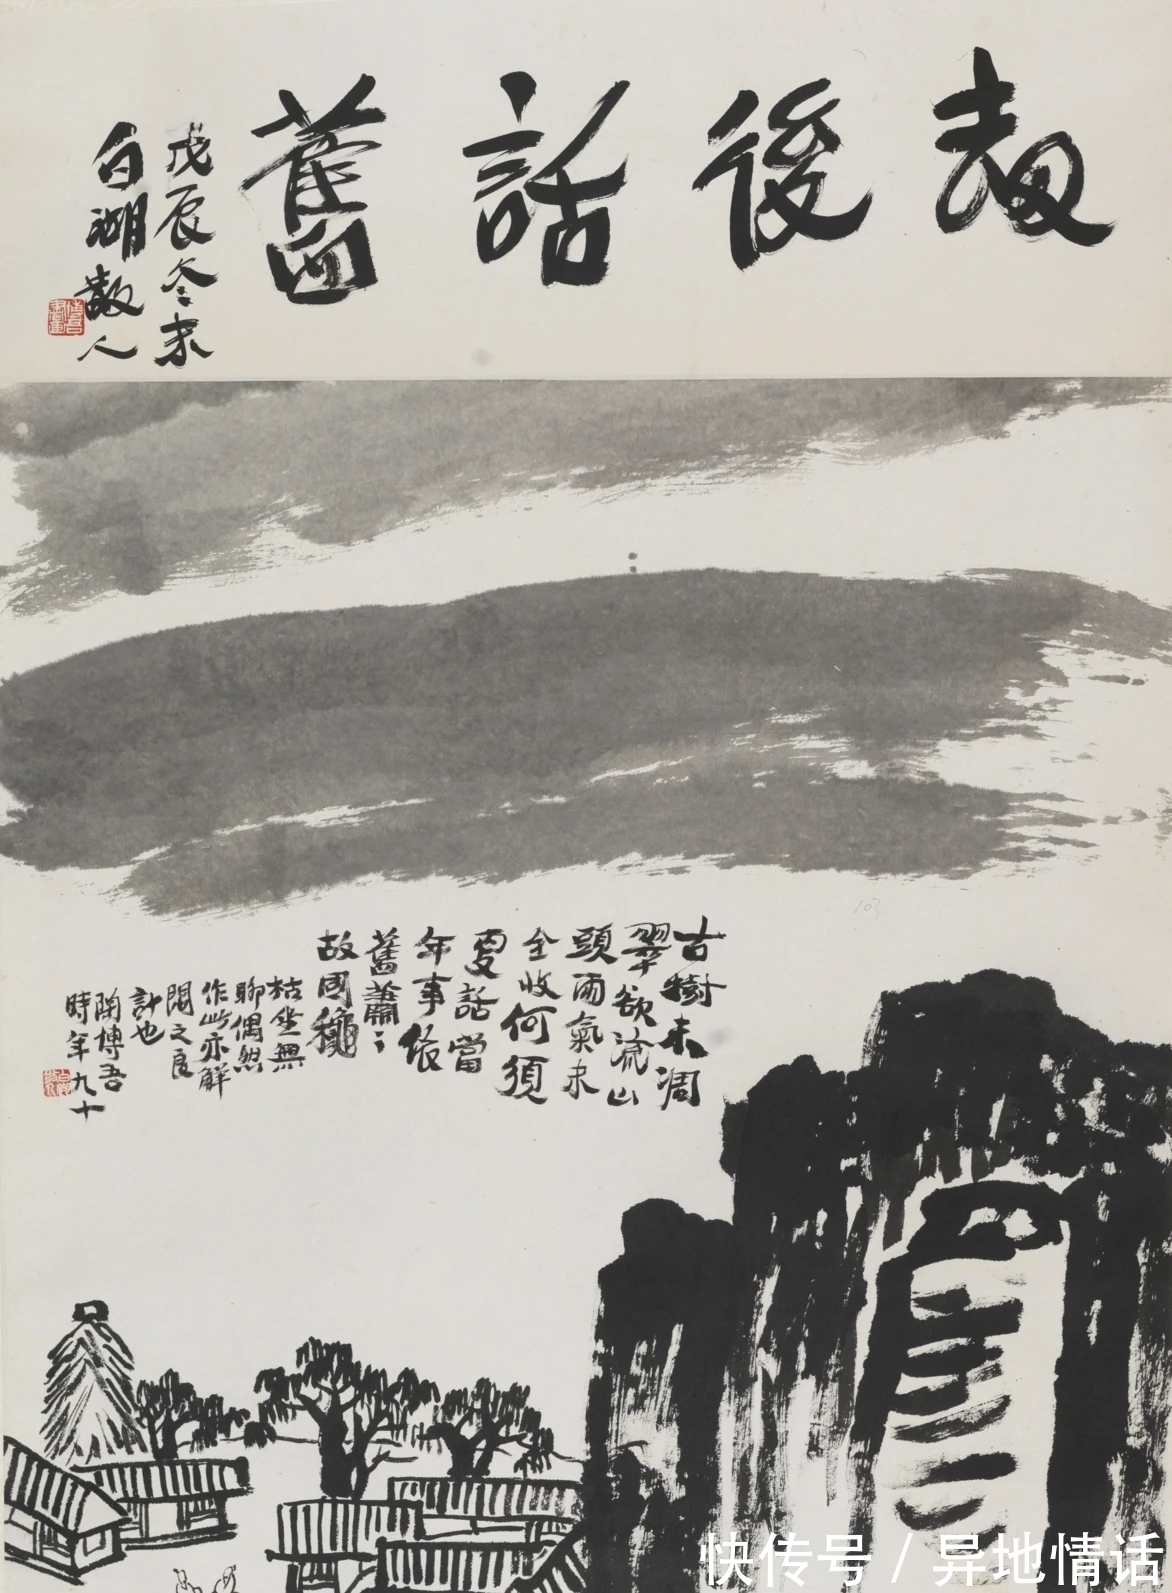 後話舊
戊辰冬末
白湖散人
古樹未凋
翠欲流山
頭雨氣未
全收何須
更話當
年事依
舊蕭〻
故國穐
枯坐無
聊偶然
作此亦解
悶之良
計也
陶博吾
時年九十
103
快传号/异地情话